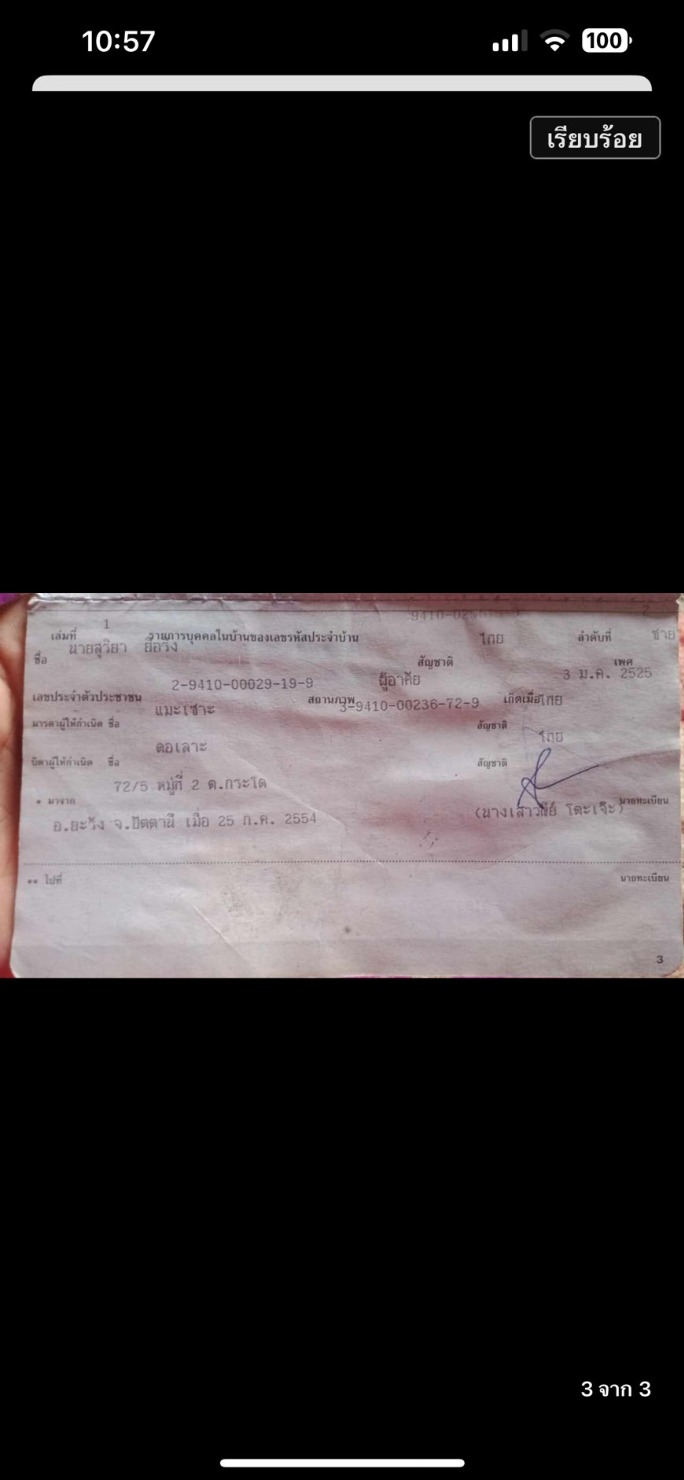 10:57
100
เรียบร้อย
เล่มที่ 1 รายการบุคคลในบ้านของเลขรหัสประจำบ้าน ลำดับที่ 2
ชื่อ นายสูวิยา ยือริง สัญชาติ ไทย เพศ ชาย
เลขประจำตัวประชาชน 2-9410-00029-19-9 สถานภาพ ผู้อาศัย เกิดเมื่อ 3 ม.ค. 2525
มารดาผู้ให้กำเนิด ชื่อ แมะเซาะ 3-9410-00236-72-9 สัญชาติ ไทย
บิดาผู้ให้กำเนิด ชื่อ ดอเลาะ สัญชาติ ไทย
* มาจาก 72/5 หมู่ที่ 2 ต.กระโด
อ.ยะรัง จ.ปัตตานี เมื่อ 25 ก.ค. 2554 นายทะเบียน
** ไปที่ นายทะเบียน
3
3 จาก 3